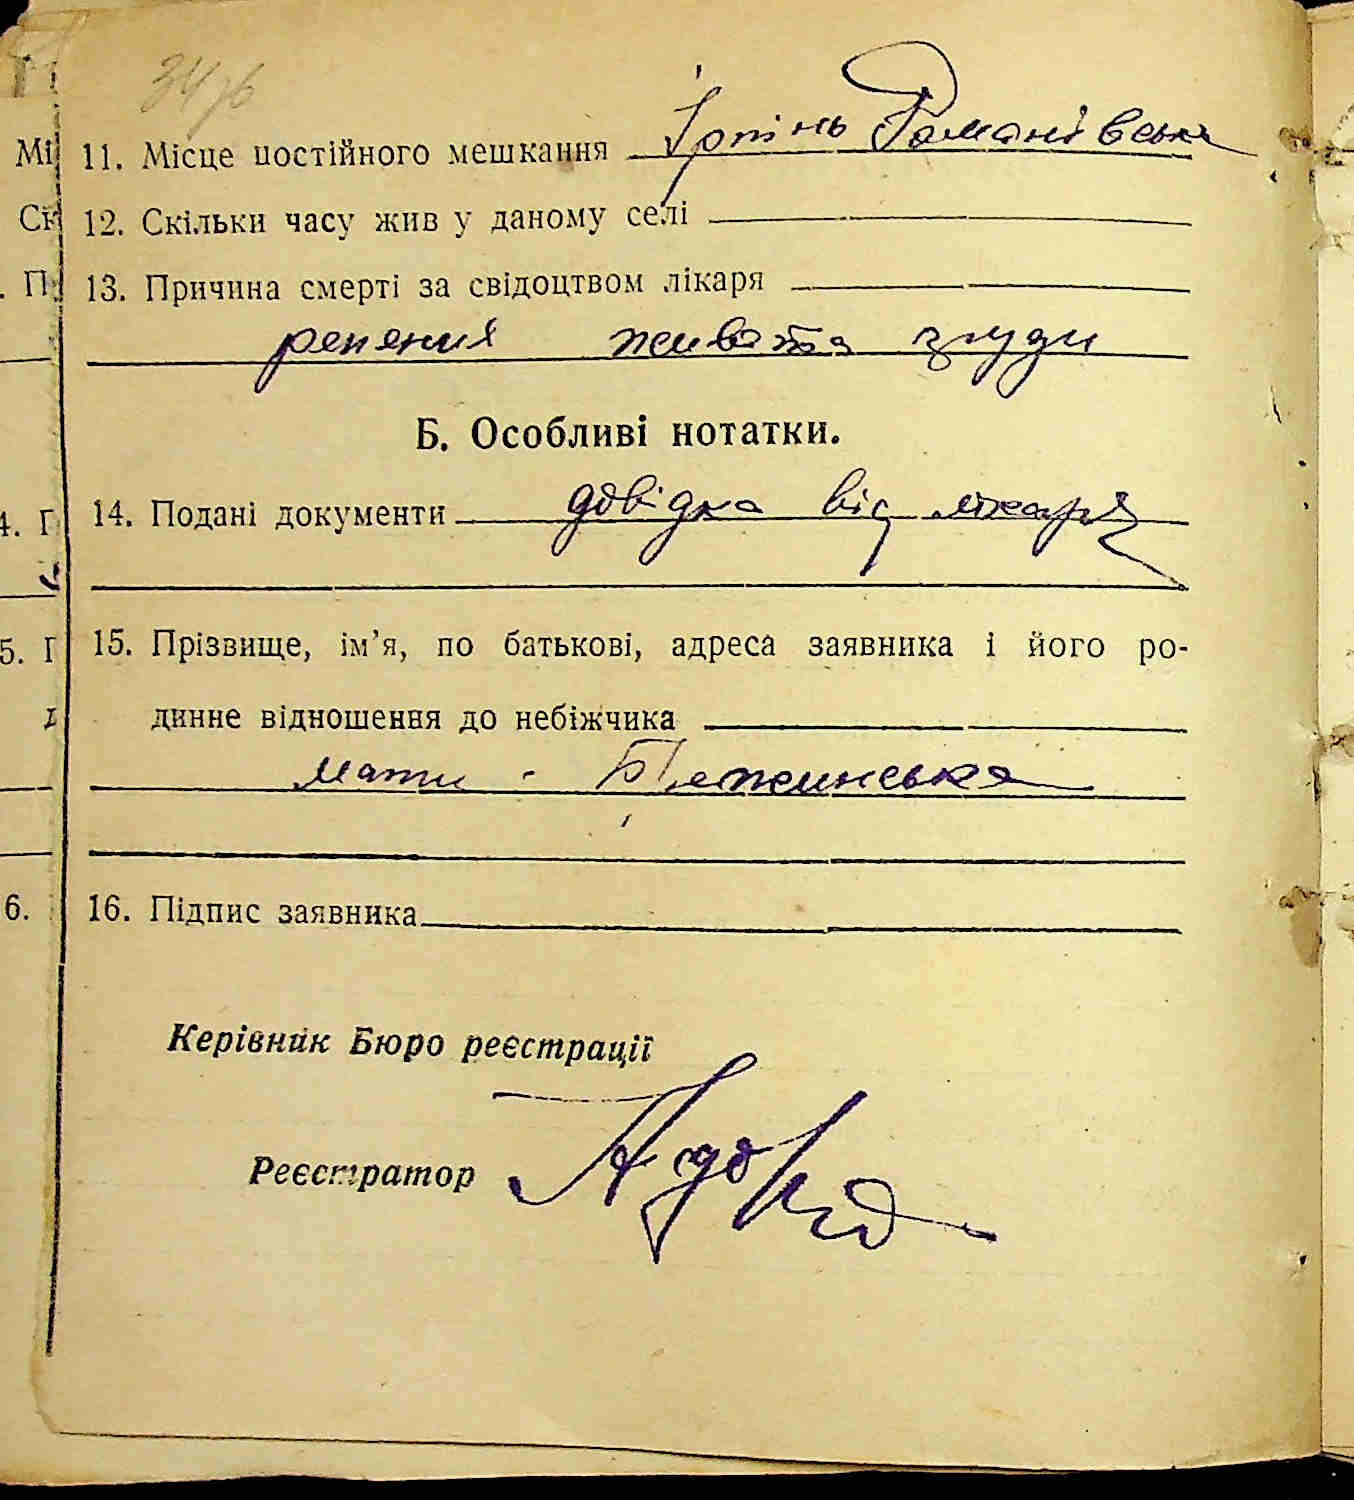 11. Місце постійного мешкання Ірпінь Романівська
12. Скільки часу жив у даному селі
13. Причина смерті за свідоцтвом лікаря
ренения живота груди
Б. Особливі нотатки.
14. Подані документи довідка від лікаря
15. Прізвище, ім’я, по батькові, адреса заявника і його ро-
динне відношення до небіжчика
мати -
16. Підпис заявника
Керівник Бюро реєстрації
Реєстратор